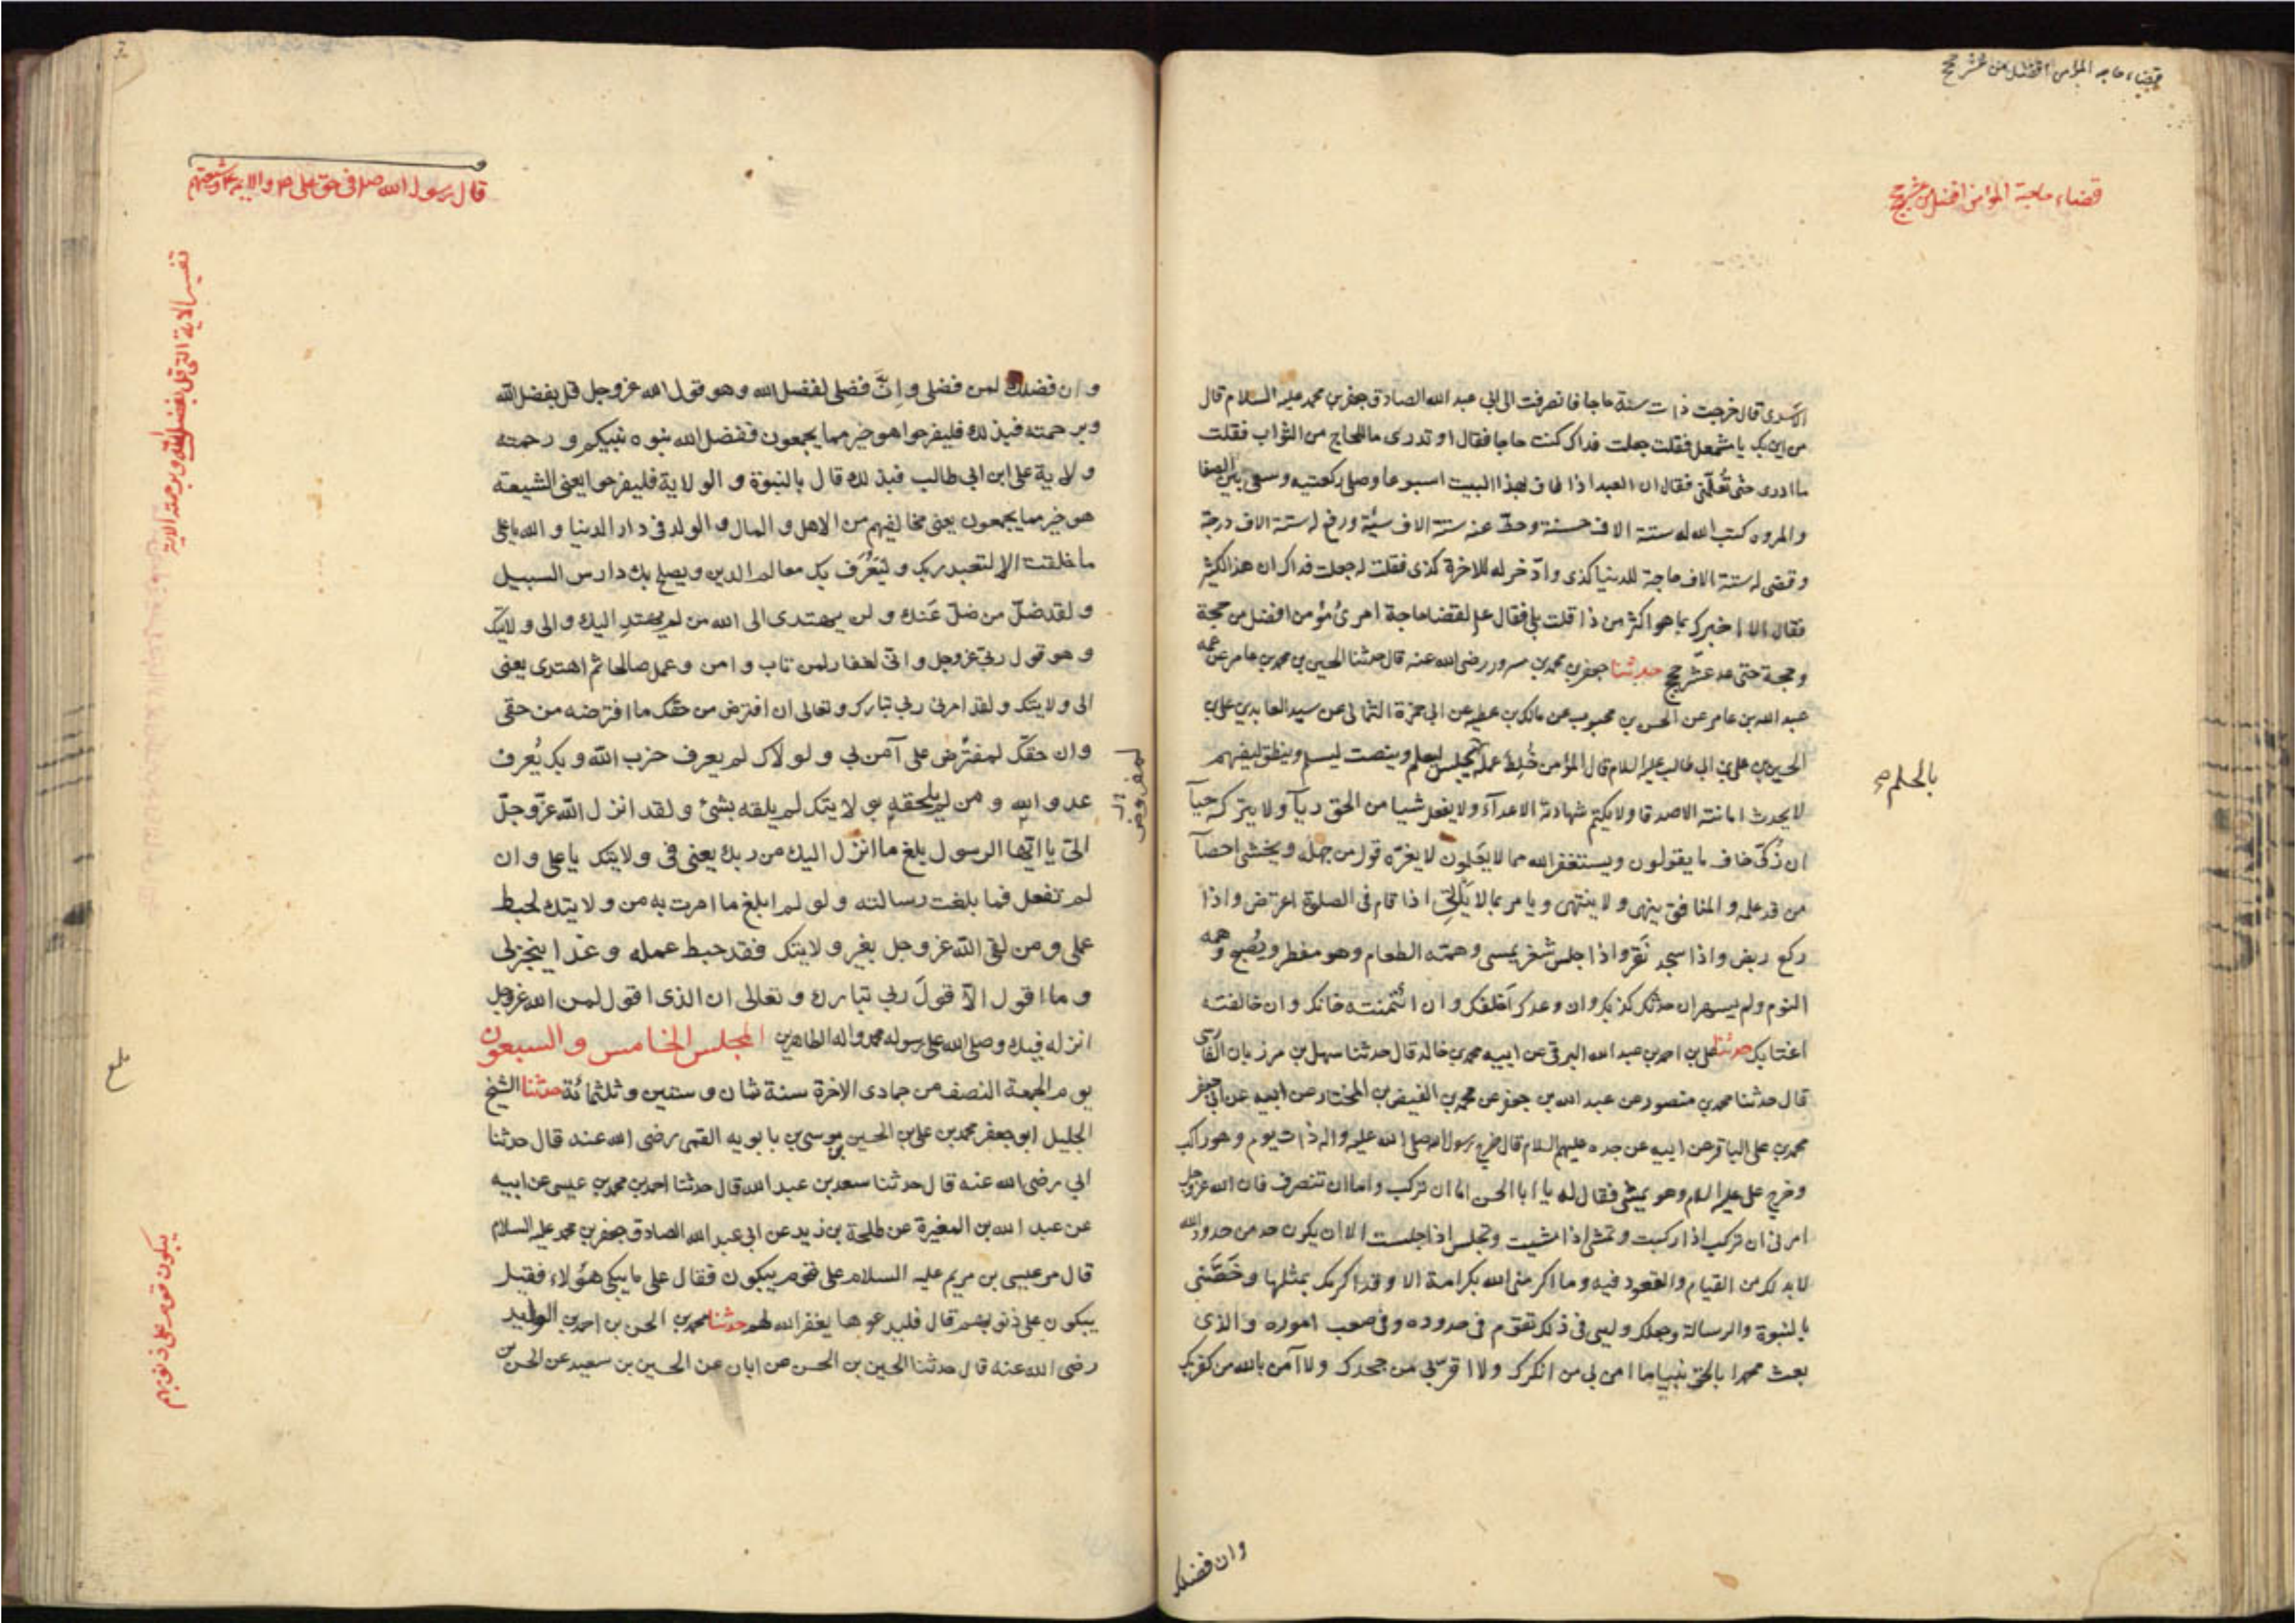 قضاء حاجة المؤمن افضل من عشر حجج
قضاء حاجة المؤمن افضل من عشر حجج
الاسدى قال خرجت ذات سنة حاجا فانصرفت الى ابى عبد الله الصادق جعفر بن محمد عليه السلام فقال
من اين بك يا مشمعل فقلت جعلت فداك كنت حاجا فقال او تدرى ما للحاج من الثواب فقلت
ما ادرى حتى تُعلّمنى فقال ان العبد اذا طاف بهذا البيت اسبوعا وصلى ركعتيه وسعى بين الصفا
والمروه كتب الله له ستة الاف حسنة وحطّ عنه ستة الاف سيّئة ورفع له ستة الاف درجة
وقضى له ستة الاف حاجة للدنيا كذى وادّخر له للاخرة كذى فقلت له جعلت فداك ان هذا لكثير
فقال الا اخبرك بما هو اكثر من ذا قلت بلى فقال ع لقضا حاجة امرئ مؤمن افضل من حجة
وحجة حتى عد عشر حجج حدثنا جعفر بن محمد بن مسرور رضى الله عنه قال حدثنا الحسين بن محمد بن عامر عن عمه
عبد الله بن عامر عن الحسن بن محبوب عن مالك بن عطيه عن ابى حمزة الثمالى عن سيد العابدين على بن
الحسين بن على بن ابى طالب عليه السلام قال المؤمن خُلِط عمله يجلس ليعلم وينصت ليسلم وينطق ليفهم
بالحلم صح
لا يحدث امانته الاصدقا ولا يكتم شهادته الاعدآء ولا يفعل شيا من الحق ريآ ولا يتركه حيآ
ان زُكّى خاف ما يقولون ويستغفر الله مما لا يعلمون لا يغرّه قول من جهله ويخشى احصآ
من قد علمه والمنافق ينهى ولا ينتهى ويامر بما لا يأتى اذا قام فى الصلوة اعترض واذا
ركع ربض واذا سجد نَقَر واذا جلس شغر يمسى وهمته الطعام وهو مفطر ويُصبح وهمه
النوم ولم يسهر ان حدثك كذبك وان وعدك اَخلفك وان ائتمنته خانك وان خالفته
اغتابك حدثنا على بن احمد بن عبد الله البرقى عن ابيه محمد بن خالد قال حدثنا سهل بن مرزبان الفارسى
قال حدثنا محمد بن منصور عن عبد الله بن جعفر عن محمد بن الفيض بن المختار عن ابيه عن ابى جعفر
محمد بن على الباقر عن ابيه عن جده عليهم السلام قال خرج رسول الله صلى الله عليه واله ذات يوم وهو راكب
وخرج على عليه السلام وهو يمشى فقال له يا ابا الحسن اما ان تركب واما ان تنصرف فان الله عز وجل
امرنى ان تركب اذا ركبت وتمشى اذا مشيت وتجلس اذا جلست الا ان يكون حد من حدود الله
لا بد لك من القيام والقعود فيه وما اكرمنى الله بكرامة الا وقد اكرمك بمثلها وخَصَّنى
بالنبوة والرسالة وجعلك وليى فى ذلك تقوم فى حدوده وفى صعب اموره والذى
بعث محمدا بالحق نبيا ما امن بى من انكرك ولا اقرّ بى من جحدك ولا آمن بالله من كفر بك
وان فضلك
قال رسول الله ص فى حق على ع والائمة ع وشيعتهم
تفسير الاية التى قل بفضل الله وبرحمته الاية
وان فضلك لمن فضلى وانّ فضلى لفضل الله وهو قول الله عز وجل قل بفضل الله
وبرحمته فبذلك فليفرحوا هو خير مما يجمعون ففضل الله نبوه نبيكم ورحمته
ولاية على ابن ابى طالب فبذلك قال بالنبوة والولاية فليفرحوا يعنى الشيعة
هو خير مما يجمعون يعنى مخالفيهم من الاهل والمال والولد فى دار الدنيا والله يا على
ما خلقت الا لتعبد ربك وليُعْرَف بك معالم الدين ويصلح بك دارس السبيل
ولقد ضلّ من ضلّ عَنك ولن يهتدى الى الله من لم يهتدِ اليك والى ولايتك
وهو قول ربى عز وجل وانى لغفار لمن تاب وامن وعمل صالحا ثم اهتدى يعنى
الى ولايتك ولقد امرنى ربى تبارك وتعالى ان افترض من حقّك ما افترضه من حقى
وان حقّك لمفترَض على آمن بى ولولاك لم يعرف حزب الله وبك يُعرف
لمفروض
عدو الله ومن لم يلحقه بولايتك لم يلقه بشئ ولقد انزل الله عزّ وجلّ
الىّ يا ايّها الرسول بلغ ما انزل اليك من ربك يعنى فى ولايتك يا على وان
لم تفعل فما بلغت رسالته ولو لم ابلغ ما امرت به من ولايتك لحبط
عملى ومن لقى الله عز وجل بغير ولايتك فقد حبط عمله وغدا ينجز لى
وما اقول الآ قولَ ربى تبارك وتعالى ان الذى اقول لمن الله عز وجل
انزله فيك وصلى الله على رسوله محمد واله الطاهرين المجلس الخامس والسبعون
يوم الجمعة النصف من جمادى الاخرة سنة ثمان وستين وثلثمائة حدثنا الشيخ
الجليل ابو جعفر محمد بن على بن الحسين بن موسى بن بابويه القمى رضى الله عنه قال حدثنا
ابى رضى الله عنه قال حدثنا سعد بن عبد الله قال حدثنا احمد بن محمد بن عيسى عن ابيه
عن عبد الله بن المغيرة عن طلحة بن زيد عن ابى عبد الله الصادق جعفر بن محمد عليه السلام
قال مر عيسى بن مريم عليه السلام على قوم يبكون فقال على ما يبكى هؤلاء فقيل
يبكون على ذنوبهم قال فليدعوها يغفر الله لهم حدثنا محمد بن الحسن بن احمد بن الوليد
رضى الله عنه قال حدثنا الحسين بن الحسن بن ابان عن الحسين بن سعيد عن الحسن بن
يبكون قوم على ذنوبهم